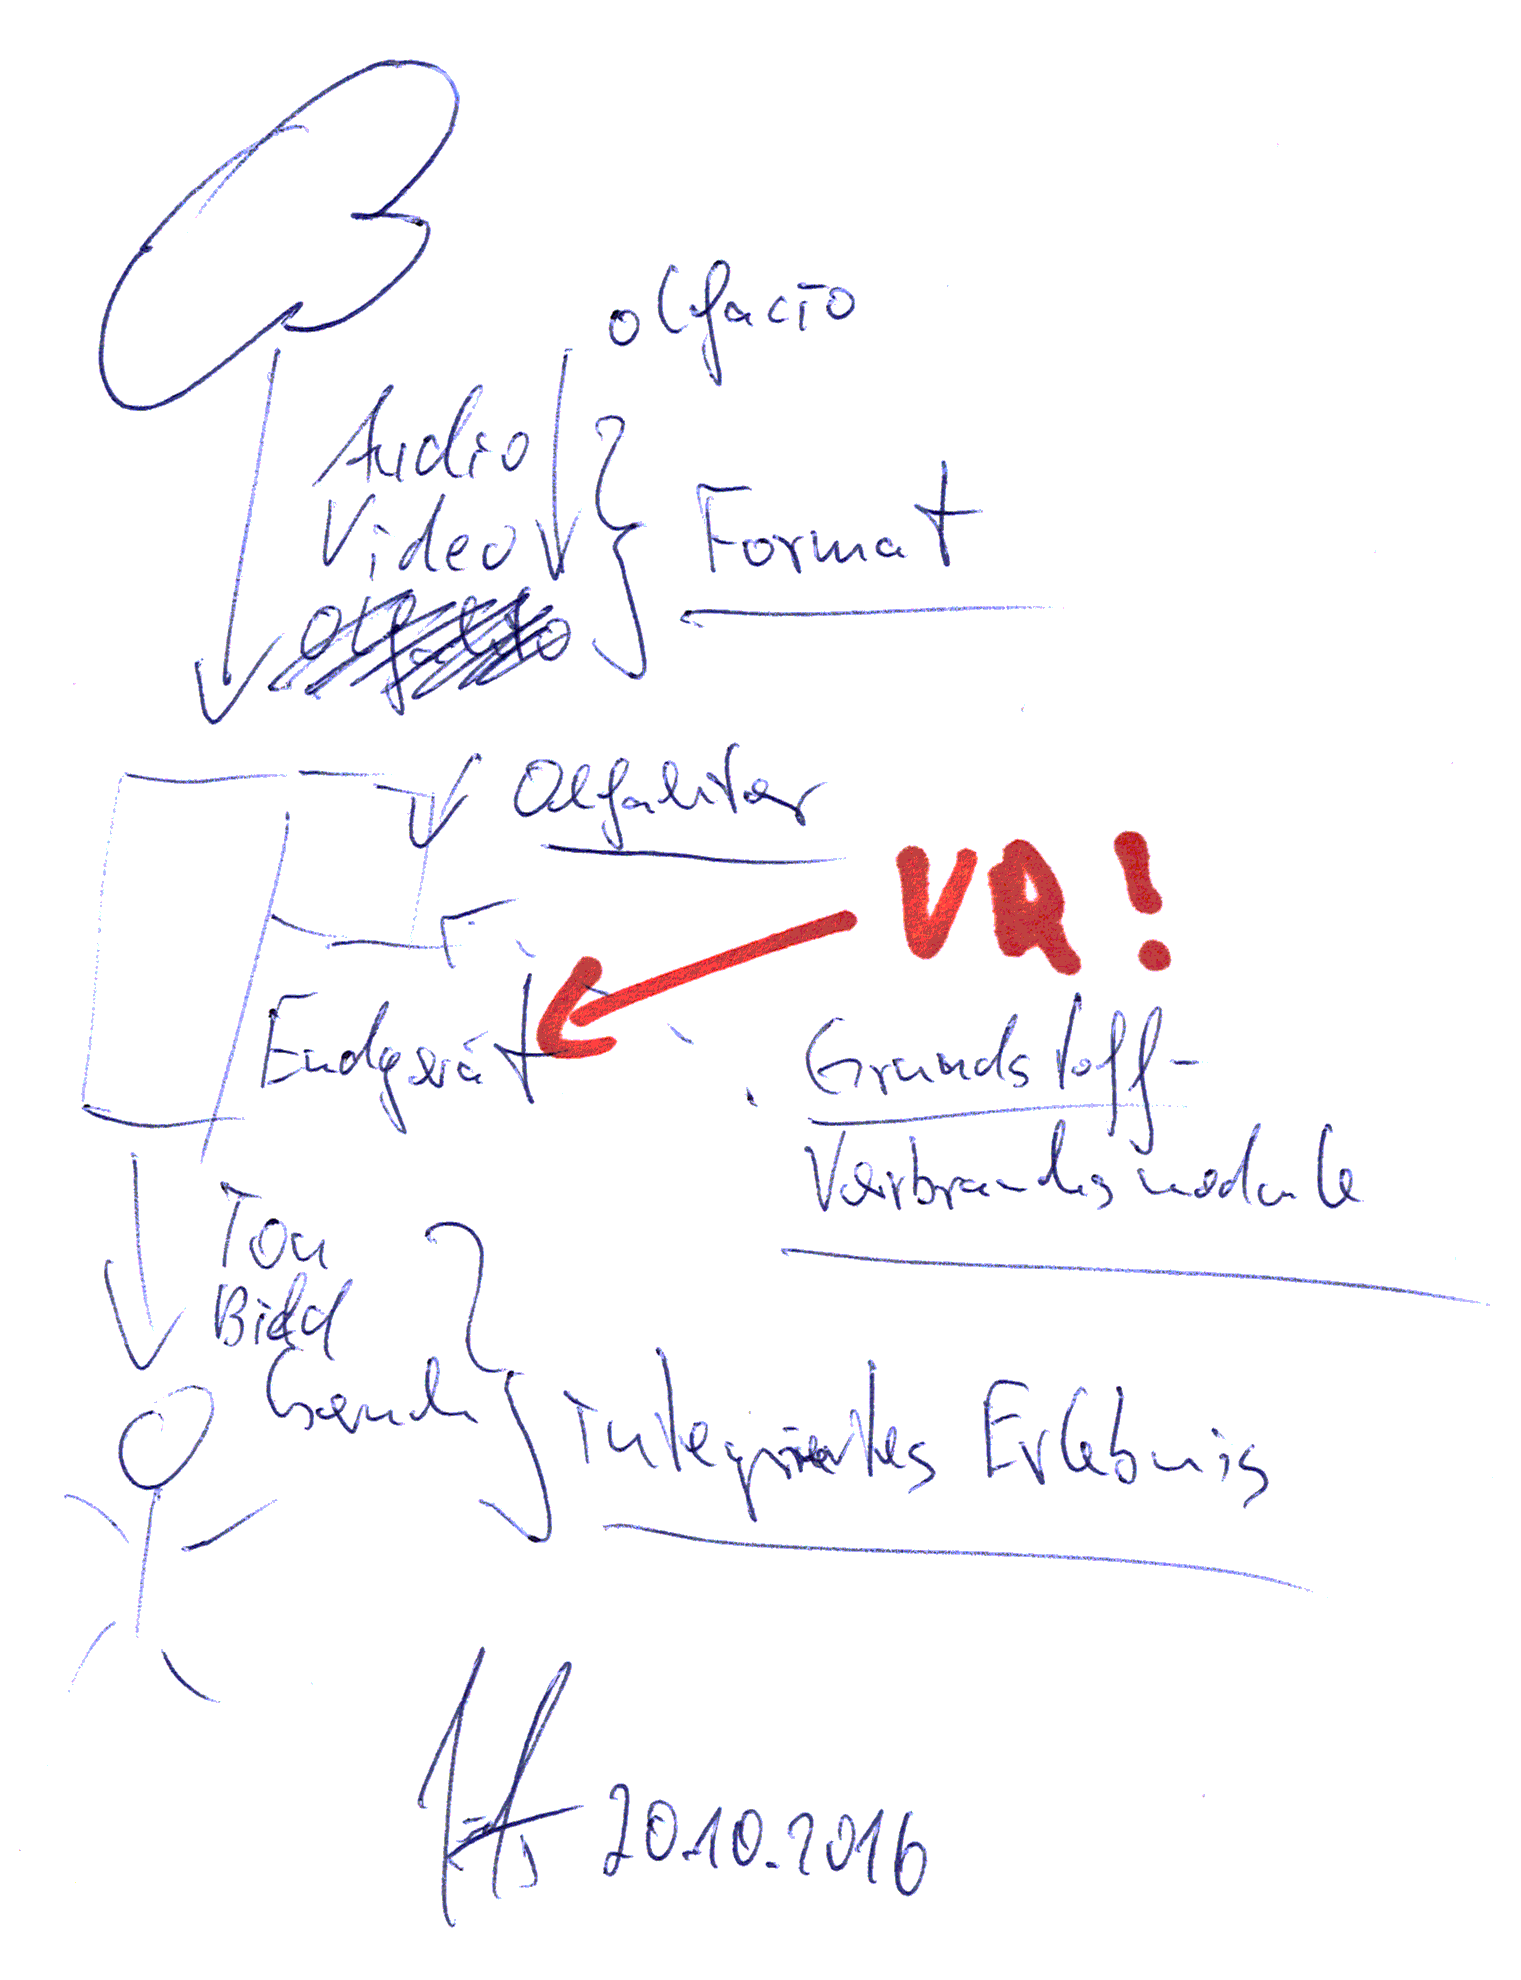 olfacto
Audio
Video
olfacto
Format
Olfaktor
VR!
Endgerät
Grundstoff-
Verbrauchsmodule
Ton
Bild
Geruch
Integriertes Erlebnis
20.10.2016